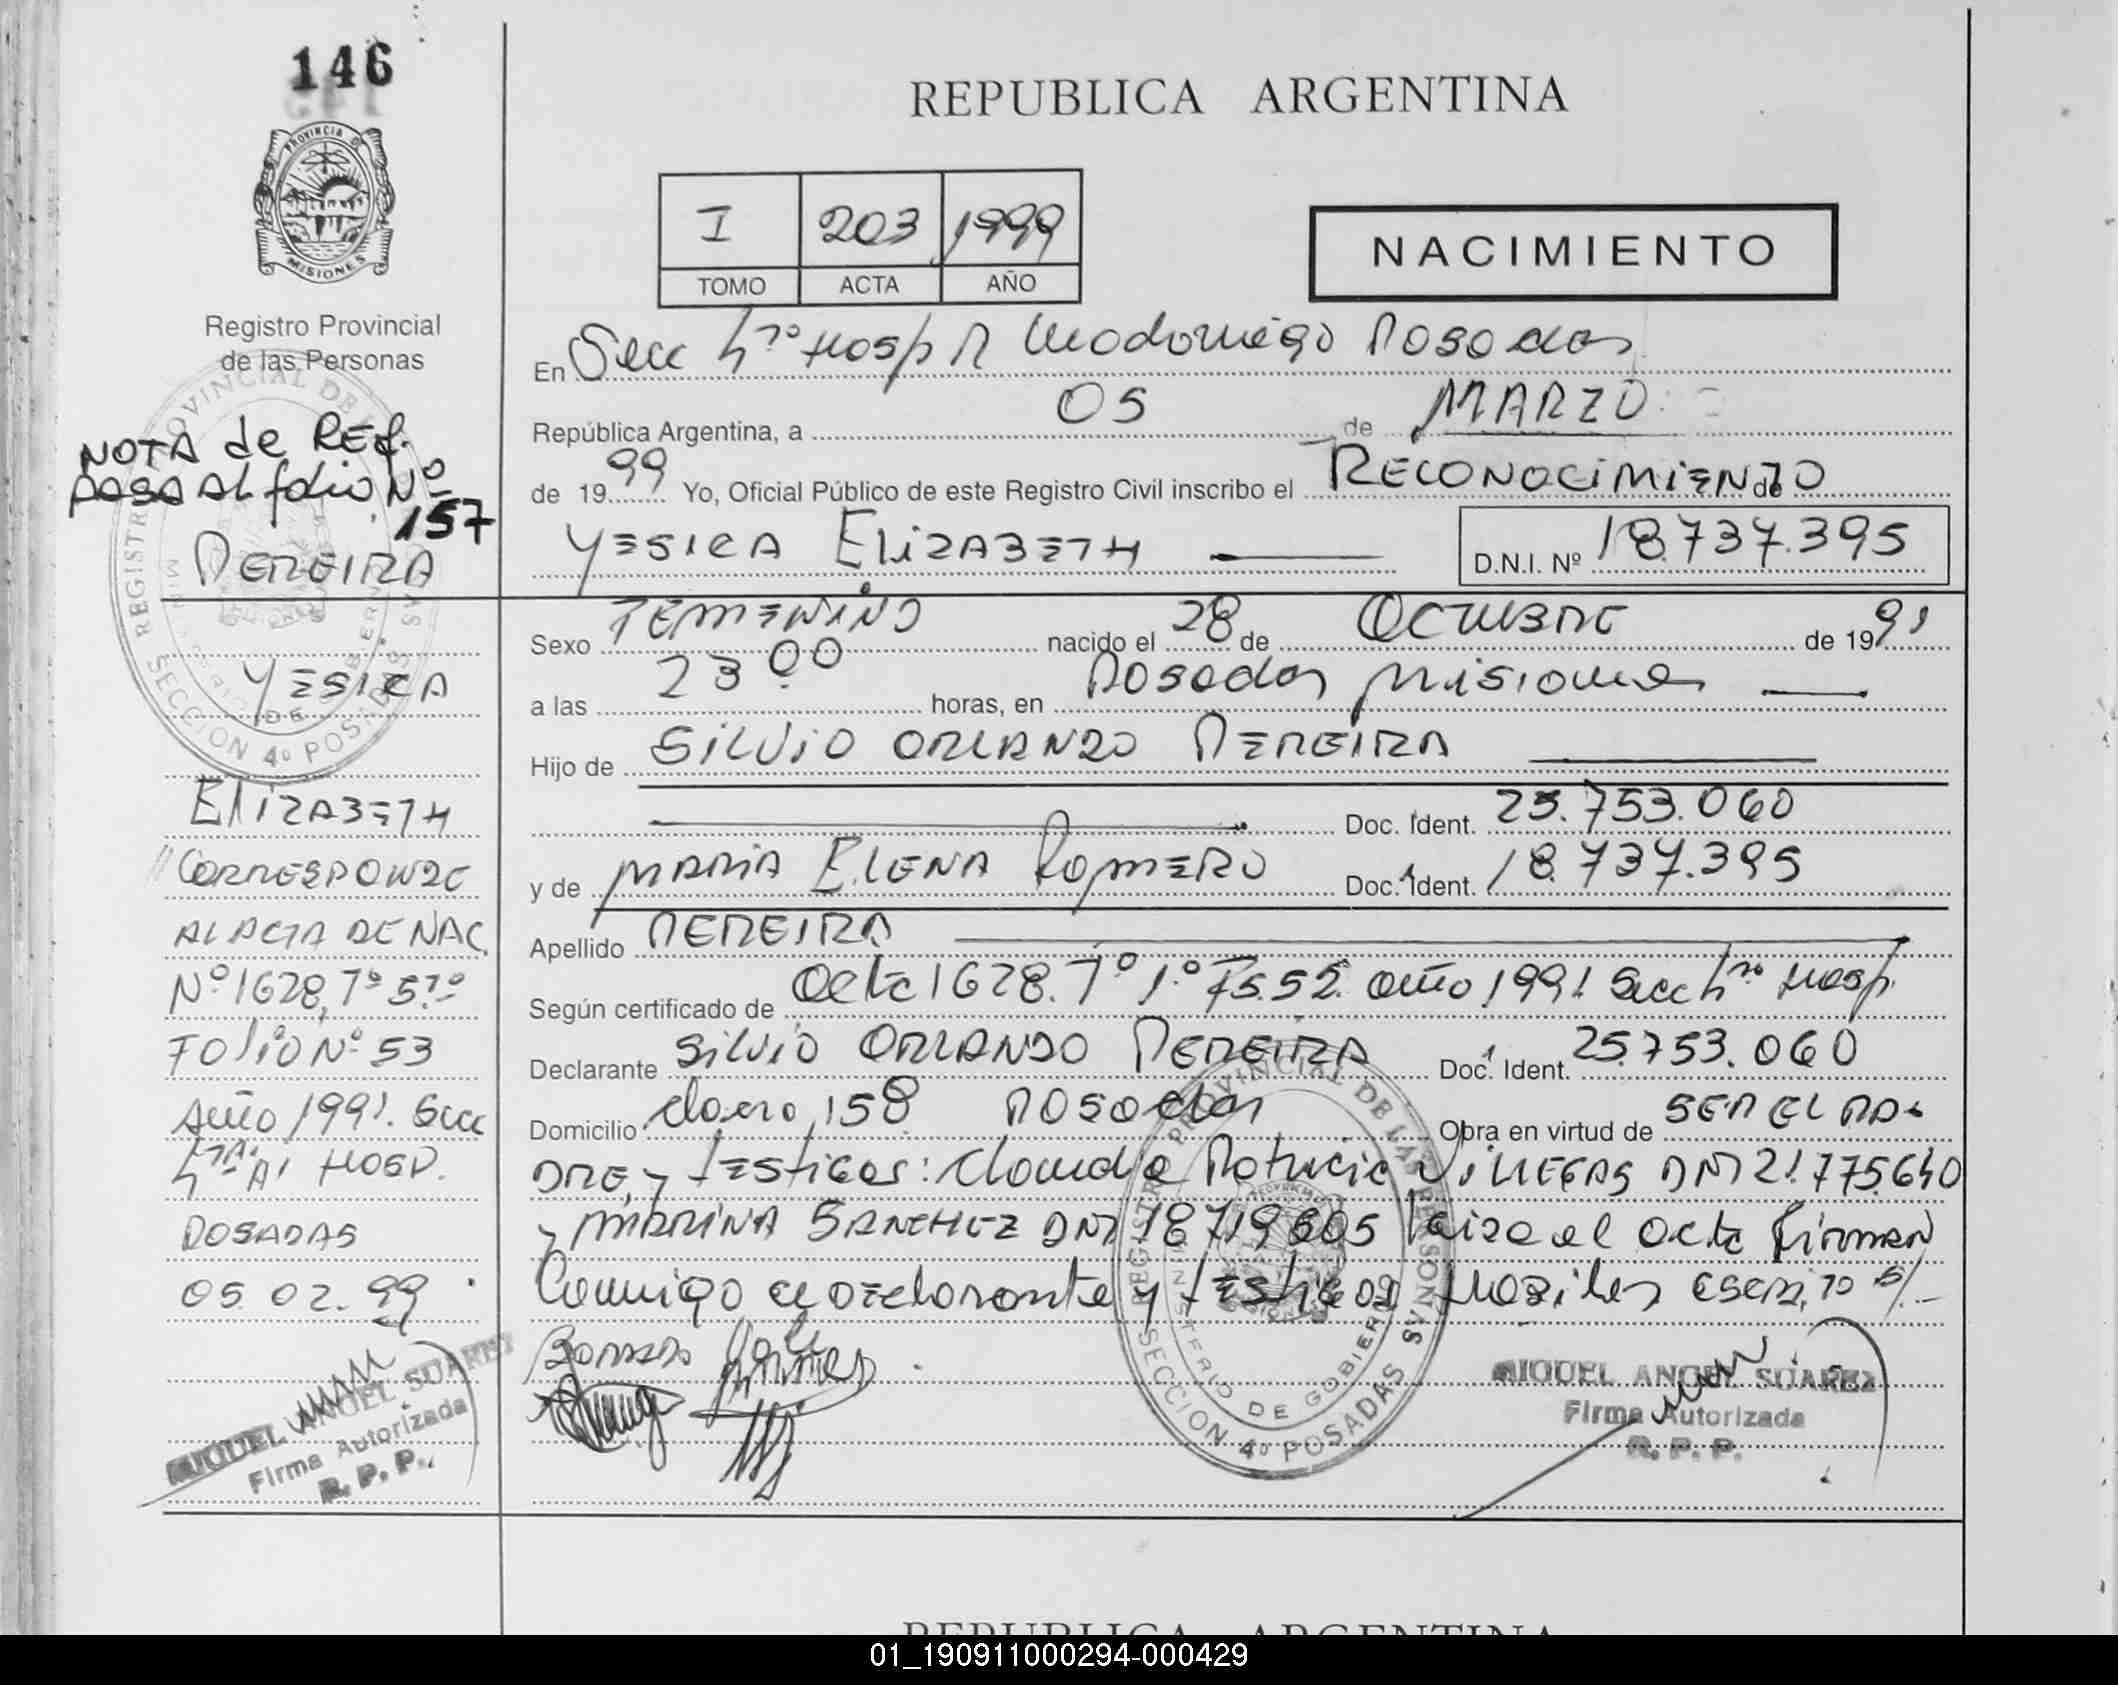 146
PROVINCIA DE
MISIONES
Registro Provincial
de las Personas
NOTA de REF.
pasa al folio Nº
157
PEREIRA
YESICA
ELIZABETH
CORRESPONDE
AL ACTA DE NAC.
Nº 1628, Tº 5º
FOLIO Nº 53
Año 1991. Secc
4ta A1 HOSP.
POSADAS
05.02.99
MIGUEL ANGEL SUAREZ
Firma Autorizada
R. P. P.
REPUBLICA ARGENTINA
I 203 1999
TOMO ACTA AÑO
NACIMIENTO
En Secc 4ta Hosp R Madariaga Posadas
República Argentina, a 05 de MARZO
de 1999 Yo, Oficial Público de este Registro Civil inscribo el RECONOCIMIENTO de
YESICA ELIZABETH D.N.I. Nº 18.737.395
Sexo FEMENINO nacido el 28 de OCTUBRE de 1991
a las 23 00 horas, en Posadas Misiones
Hijo de SILVIO ORLANDO PEREIRA
Doc. Ident. 25.753.060
y de MARIA ELENA ROMERO Doc. Ident. 18.737.395
Apellido PEREIRA
Según certificado de Acta 1628. Tº 1º Fs. 52. año 1991. Secc 4ta Hosp.
Declarante SILVIO ORLANDO PEREIRA Doc. Ident. 25.753.060
Domicilio 158 POSADAS Obra en virtud de SER EL PA-
DRE, y testigos: Claudia Patricia VILLEGAS DNI 21.775.640
y MARINA SANCHEZ DNI 18719605 Leida el Acta firman
Conmigo el declarante y testigos
REGISTRO PROVINCIAL DE LAS PERSONAS
MINISTERIO DE GOBIERNO
SECCION 4º POSADAS
MIGUEL ANGEL SUAREZ
Firma Autorizada
R. P. P.
REPUBLICA ARGENTINA
01_190911000294-000429